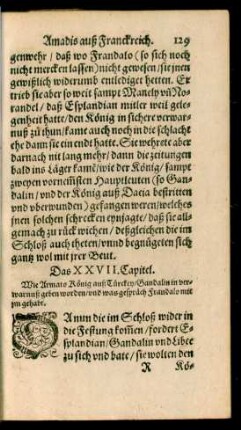 Amadis auß Franckreich. 129
genwehr / daß wo Frandalo (so sich noch
nicht mercken lassen) nicht gewesen / sie jnen
gewißlich widerumb entlediget hetten. Er
trieb sie aber so weit sampt Manely vñ No-
randel / daß Esplandian mitler weil gele-
genheit hatte / den König in sichere verwar-
nuß zu thun / kame auch noch in die schlacht
ehe dann sie ein end hatte. Sie wehrete aber
darnach nit lang mehr / dann die zeitungen
bald ins Läger kamē / wie der König / sampt
zweyen vornemsten Hauptleuten (so Gan-
dalin / vnd der König auß Dacia bestritten
vnd vberwunden) gefangen weren / welches
jnen solchen schrecken eynjagte / daß sie all-
gemach zu rück wichen / deßgleichen die im
Schloß auch theten / vnnd begnügeten sich
gantz wol mit jrer Beut.
Das XXVII. Capitel.
Wie Armato König auß Türckey / Gandalin in ver-
warnuß geben worden / vnd was gespräch Frandalo mit
jm gehabt.
DAmm die im Schloß wider in
die Festung kom̃en / fordert Es-
splandian / Gandalin vnd Libee
zu sich vnd batt / sie wolten den
R Kö-